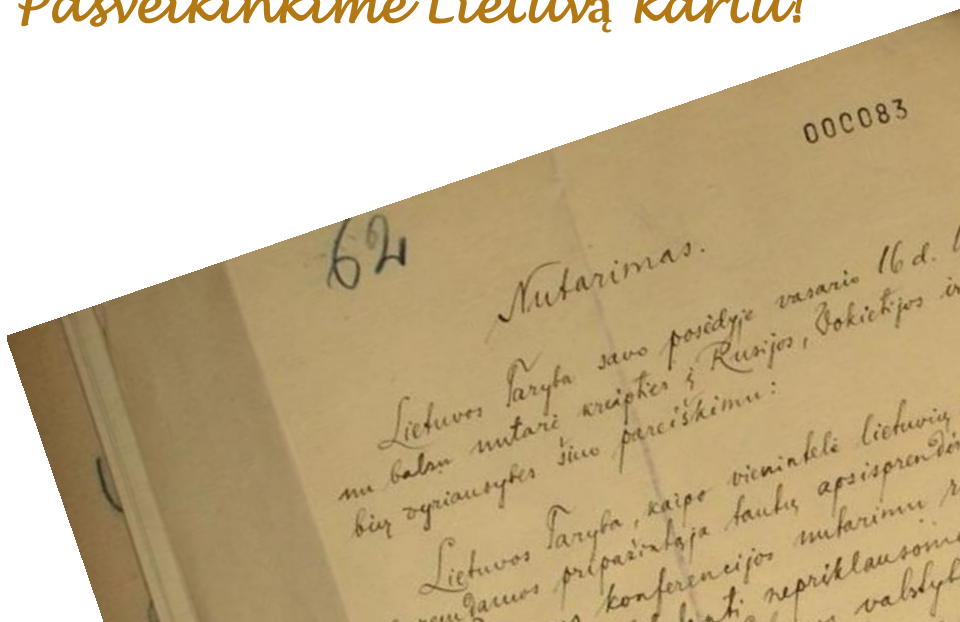 Pasveikinkime Lietuvą kartu!
000083
62
Nutarimas.
Lietuvos Taryba savo posėdyje vasario 16 d.
nu balsu nutarė kreipties į Rusijos, Vokietijos ir
bių vyriausybes šiuo pareiškimu:
Lietuvos Taryba, kaipo vienintelė lietuvių
remdamos pripažintąja tautų apsisprendi
konferencijos nutarimu
nepriklausom
valstyb